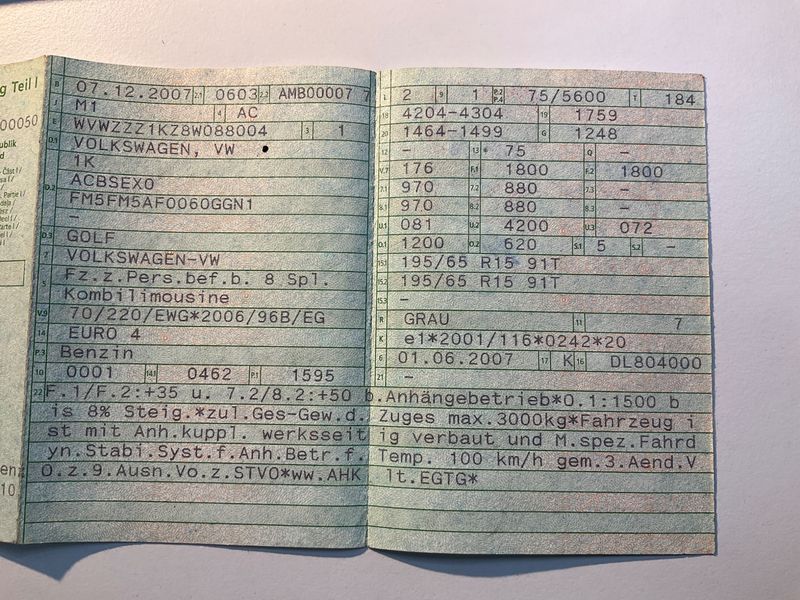 g Teil I
B 07.12.2007 2.1 0603 2.2 AMB00007 7
J M1 4 AC
E WVWZZZ1KZ8W088004 3 1
D.1 VOLKSWAGEN, VW
1K
D.2 ACBSEX0
FM5FM5AF0060GGN1
-
D.3 GOLF
2 VOLKSWAGEN-VW
5 Fz.z.Pers.bef.b. 8 Spl.
Kombilimousine
V.9 70/220/EWG*2006/96B/EG
14 EURO 4
P.3 Benzin
10 0001 14.1 0462 P.1 1595
L 2 9 1 P.2 P.4 75/5600 T 184
18 4204-4304 19 1759
20 1464-1499 G 1248
12 - 13 * 75 Q -
V.7 176 F.1 1800 F.2 1800
7.1 970 7.2 880 7.3 -
8.1 970 8.2 880 8.3 -
U.1 081 U.2 4200 U.3 072
O.1 1200 O.2 620 S.1 5 S.2 -
15.1 195/65 R15 91T
15.2 195/65 R15 91T
15.3 -
R GRAU 11 7
K e1*2001/116*0242*20
6 01.06.2007 17 K 16 DL804000
21 -
22 F.1/F.2:+35 u. 7.2/8.2:+50 b.Anhängebetrieb*0.1:1500 b
is 8% Steig.*zul.Ges-Gew.d. Zuges max.3000kg*Fahrzeug i
st mit Anh.kuppl. werksseit ig verbaut und M.spez.Fahrd
yn.Stabi.Syst.f.Anh.Betr.f. Temp. 100 km/h gem.3.Aend.V
O.z.9.Ausn.Vo.z.STVO*ww.AHK lt.EGTG*